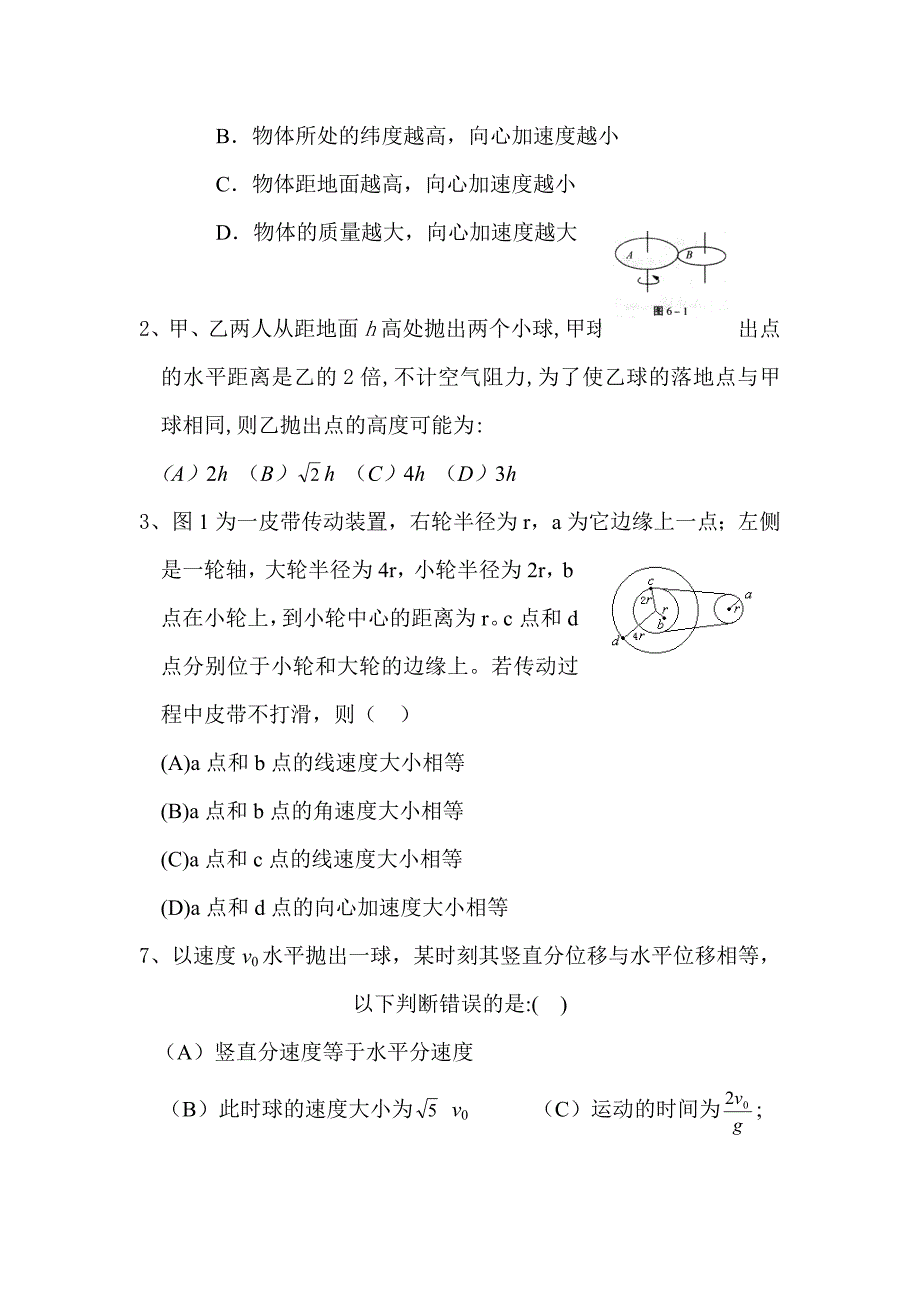 B．物体所处的纬度越高，向心加速度越小
C．物体距地面越高，向心加速度越小
D．物体的质量越大，向心加速度越大
A B
图 6－1
2、甲、乙两人从距地面 h 高处抛出两个小球,甲球 出点
的水平距离是乙的 2 倍,不计空气阻力,为了使乙球的落地点与甲
球相同,则乙抛出点的高度可能为:
(A）2h （B）√2 h （C）4h （D）3h
3、图 1 为一皮带传动装置，右轮半径为 r，a 为它边缘上一点；左侧
是一轮轴，大轮半径为 4r，小轮半径为 2r，b
点在小轮上，到小轮中心的距离为 r。c 点和 d
点分别位于小轮和大轮的边缘上。若传动过
程中皮带不打滑，则（ ）
c 2r r b d 4r a r
(A)a 点和 b 点的线速度大小相等
(B)a 点和 b 点的角速度大小相等
(C)a 点和 c 点的线速度大小相等
(D)a 点和 d 点的向心加速度大小相等
7、以速度 v₀ 水平抛出一球，某时刻其竖直分位移与水平位移相等，
以下判断错误的是:( )
（A）竖直分速度等于水平分速度
（B）此时球的速度大小为 √5 v₀ （C）运动的时间为 2v₀/g ;